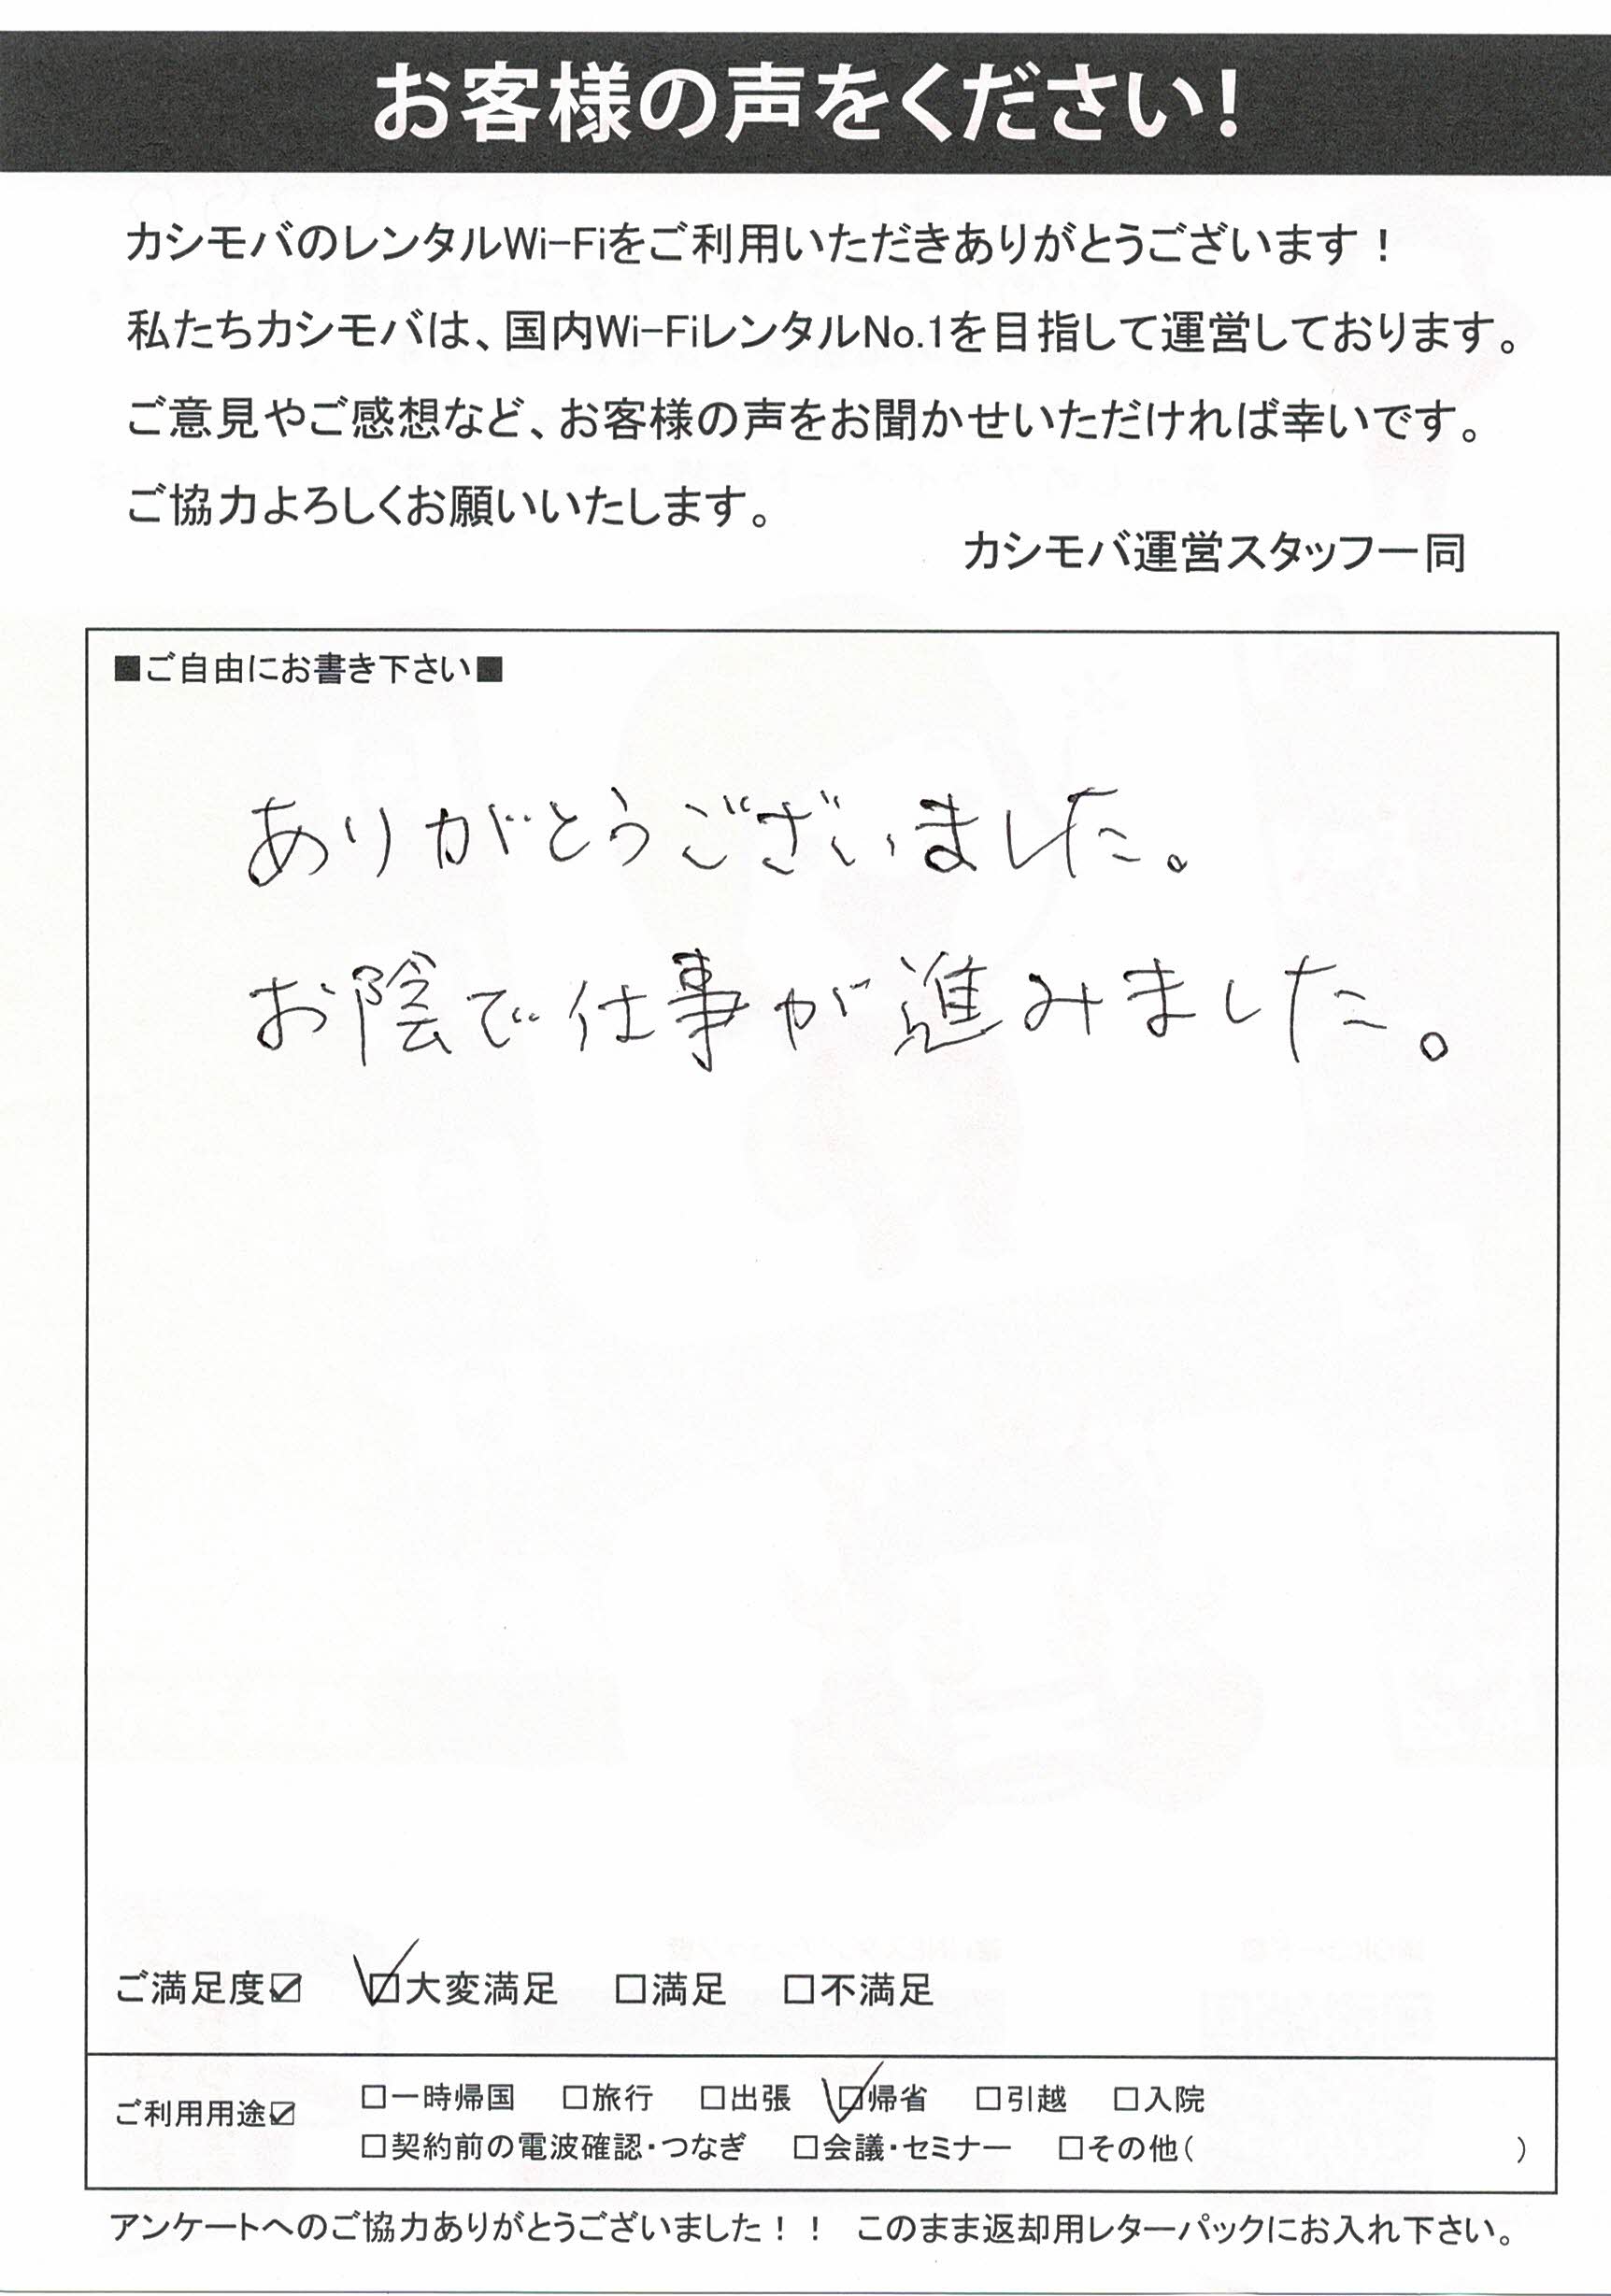 お客様の声をください!
カシモバのレンタルWi-Fiをご利用いただきありがとうございます！
私たちカシモバは、国内Wi-FiレンタルNo.1を目指して運営しております。
ご意見やご感想など、お客様の声をお聞かせいただければ幸いです。
ご協力よろしくお願いいたします。
カシモバ運営スタッフ一同
■ご自由にお書き下さい■
ありがとうございました。
お陰で仕事が進みました。
ご満足度☑ ☑大変満足 □満足 □不満足
ご利用用途☑ □一時帰国 □旅行 □出張 ☑帰省 □引越 □入院
□契約前の電波確認・つなぎ □会議・セミナー □その他( )
アンケートへのご協力ありがとうございました！！ このまま返却用レターパックにお入れ下さい。